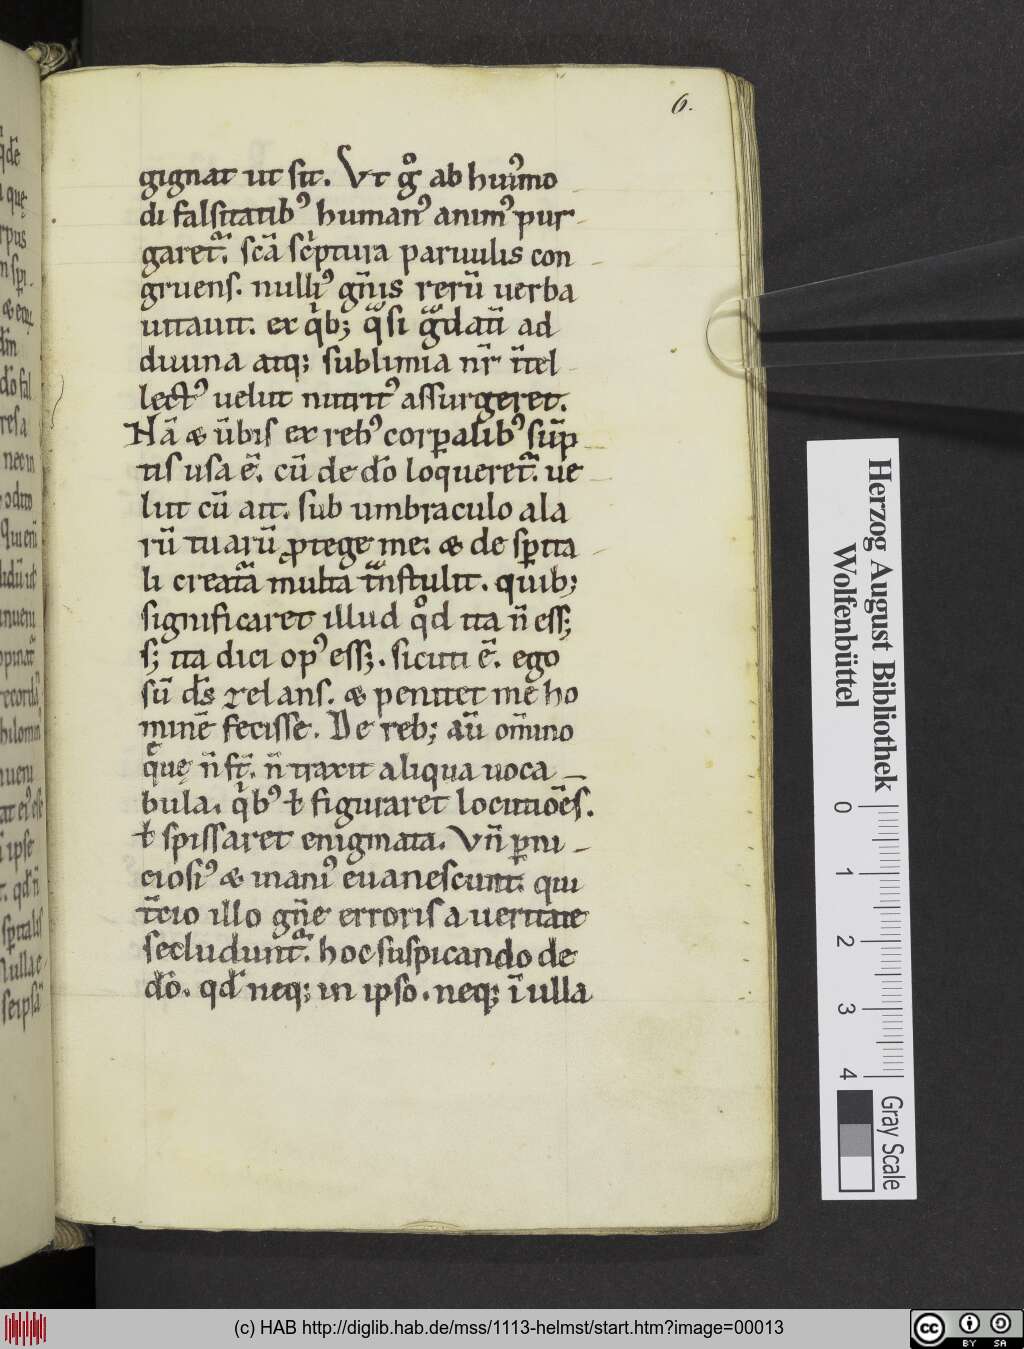 6.
gignat ut sit. Vt gͦ ab huiꝰmo
di falsitatibꝰ humanꝰ animꝰ pur
garet᷑. scā scͥptura paruulis con
gruens. nulliꝰ gn̄is rerū uerba
uitauit. ex qͥb; qͣsi gͣdati ad
diuina atq; sublimia nr̄ ītel
lectꝰ uelut nutritꝰ assurgeret.
Nā & ūbis ex rebꝰ corꝑalibꝰ sūp
tis usa ē. cū de dō loqueret᷑. ue
lut cū ait. sub umbraculo ala
rū tuarū ꝓtege me. & de sp̄ita
li creatͣa multa tͣnstulit. quib;
significaret illud qͦd ita n̄ ess;
s; ita dici opꝰ ess;. sicuti ē. ego
sū dс̄ zelans. & penitet me ho
minē fecisse. De reb; aū om̄ino
que n̄ st̄. n̄ traxit aliqua uoca
bula. qͥbꝰ ł figuraret locutiōes.
ł spissaret enigmata. Vn̄ ꝑni
ciosiꝰ & inaniꝰ euanescunt. qui
t̄cio illo gn̄e erroris a ueritate
secludunt᷑. hoc suspicando de
dō. qd̄ neq; in ipso. neq; ī ulla
Herzog August Bibliothek
Wolfenbüttel
0 1 2 3 4
Gray Scale
(c) HAB http://diglib.hab.de/mss/1113-helmst/start.htm?image=00013
cc BY SA